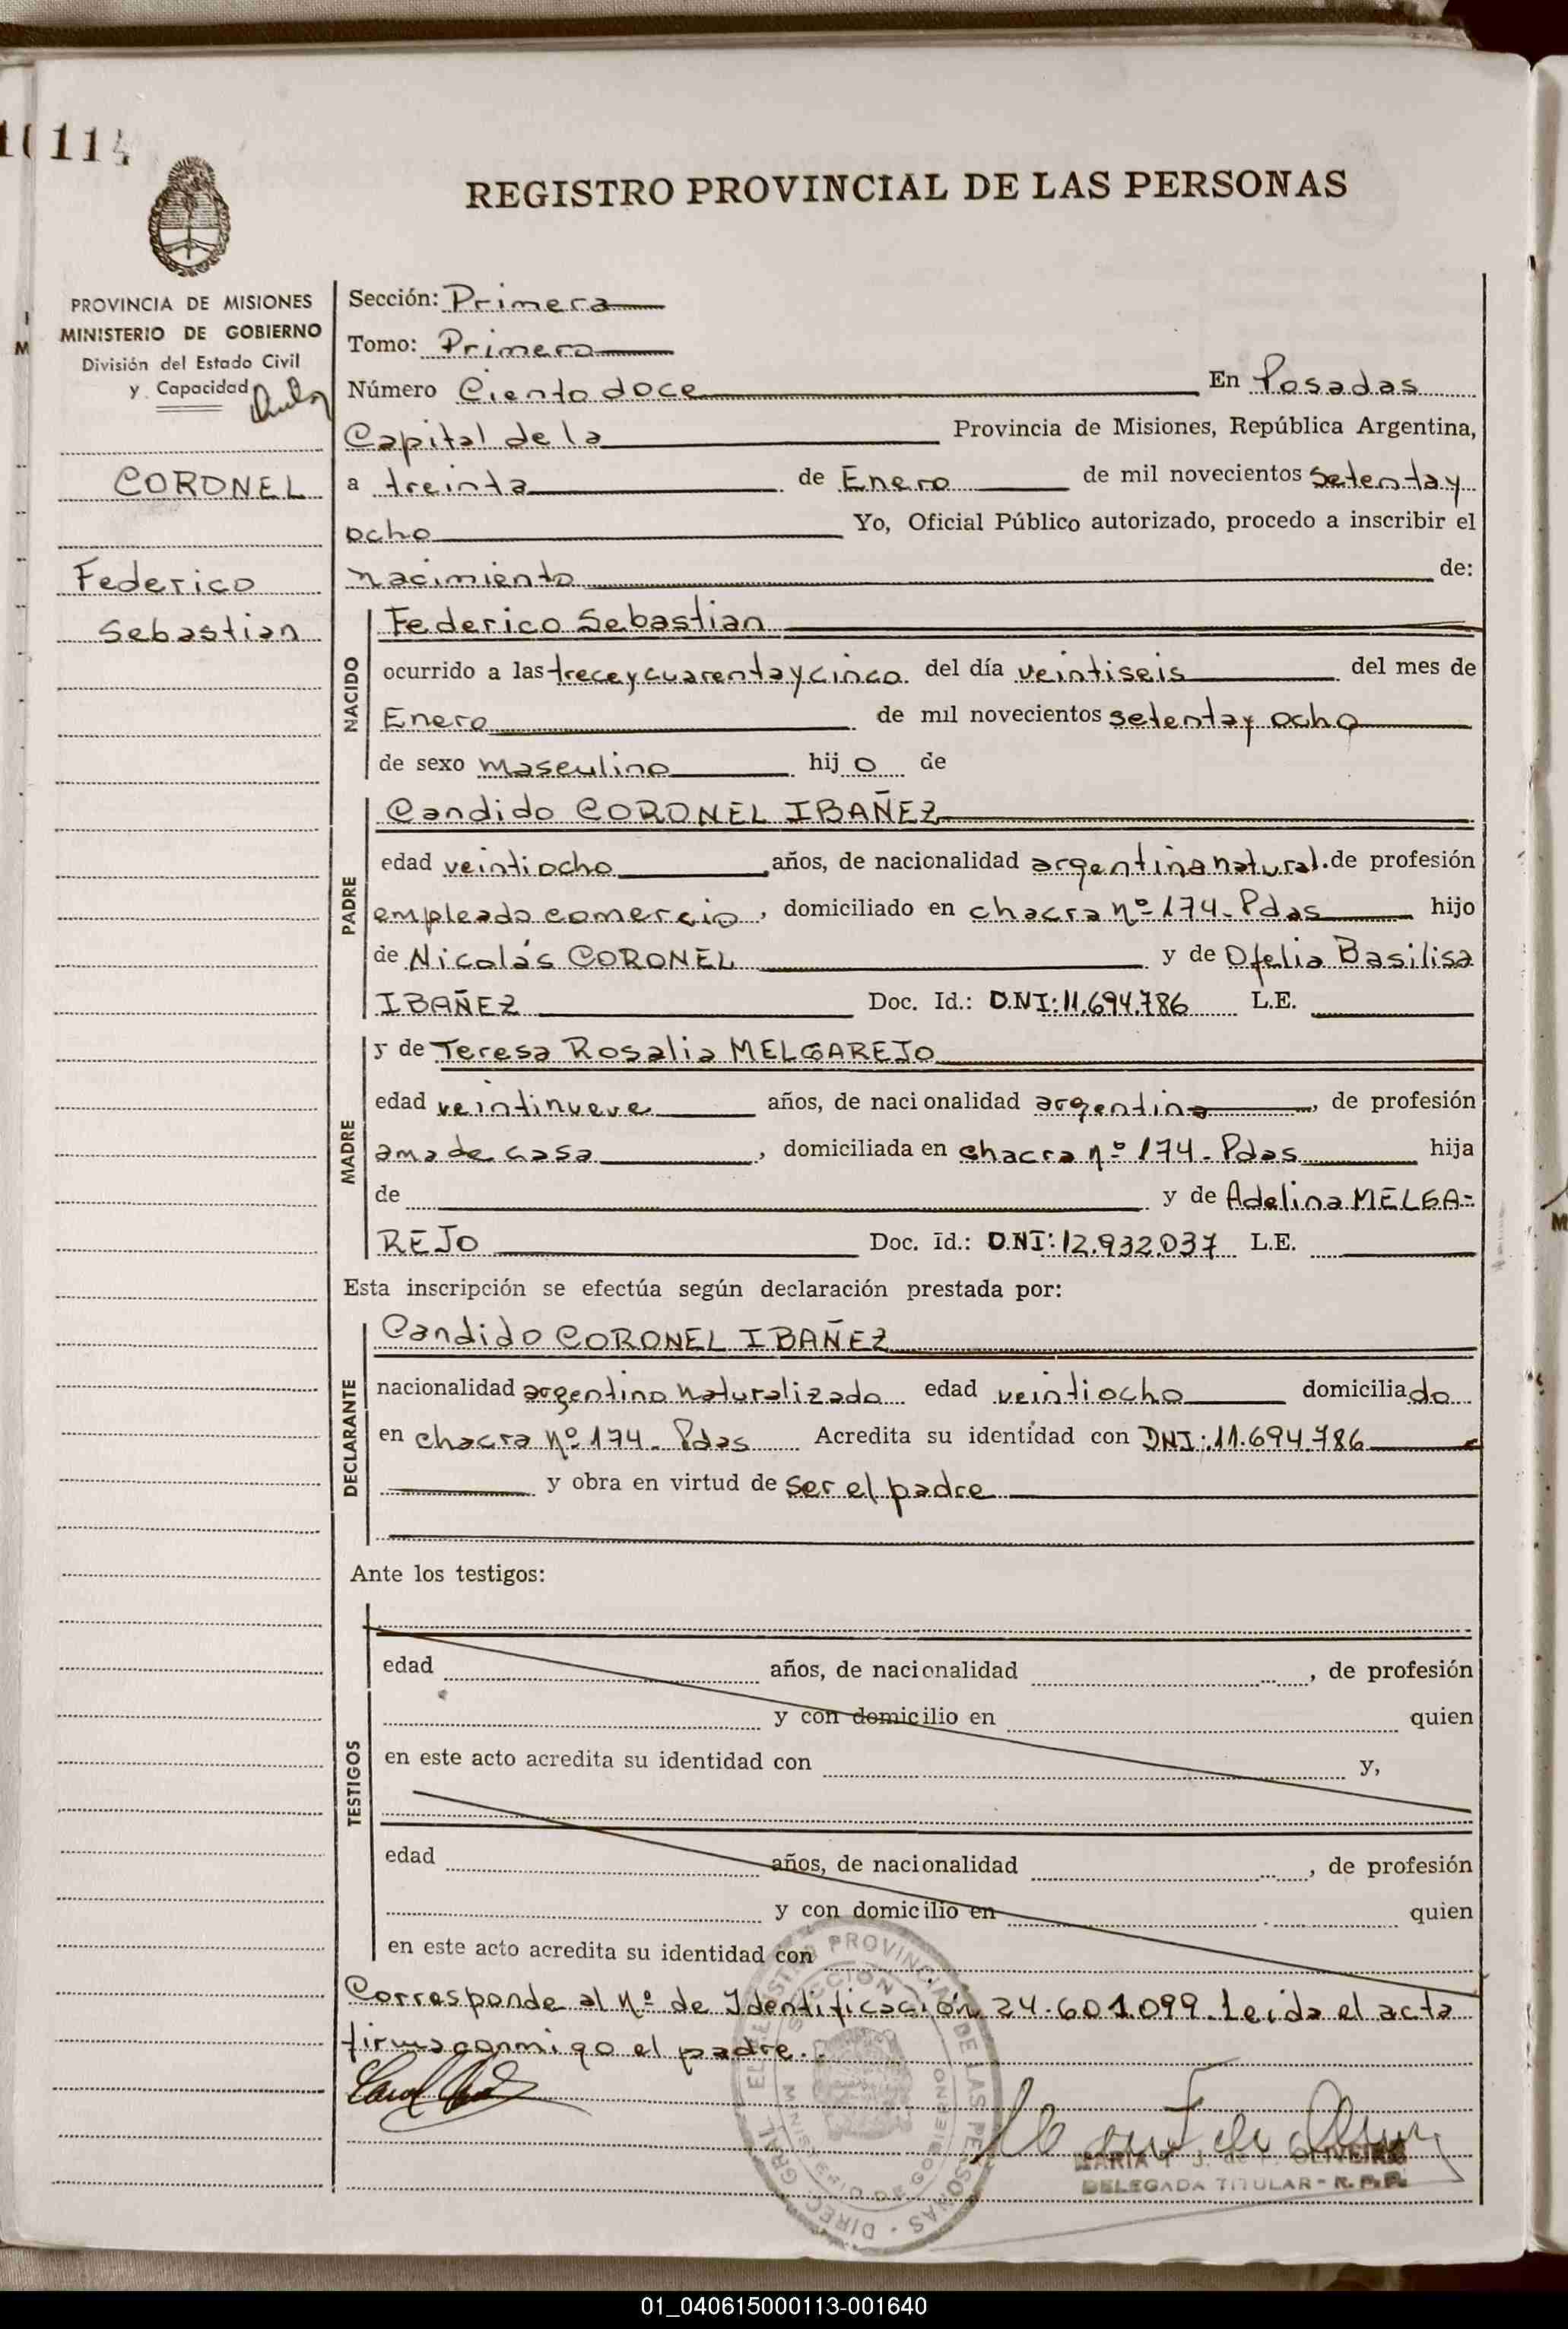 114
REGISTRO PROVINCIAL DE LAS PERSONAS
PROVINCIA DE MISIONES
MINISTERIO DE GOBIERNO
División del Estado Civil
y Capacidad
CORONEL
Federico
Sebastian
Sección: Primera
Tomo: Primero
Número Ciento doce En Posadas
Capital de la Provincia de Misiones, República Argentina,
a treinta de Enero de mil novecientos setenta y
ocho Yo, Oficial Público autorizado, procedo a inscribir el
nacimiento de:
NACIDO
Federico Sebastian
ocurrido a las trece y cuarenta y cinco del día veintiseis del mes de
Enero de mil novecientos setenta y ocho
de sexo masculino hijo de
PADRE
Candido CORONEL IBAÑEZ
edad veintiocho años, de nacionalidad argentina natural. de profesión
empleado comercio, domiciliado en chacra nº 174-Pdas hijo
de Nicolás CORONEL y de Ofelia Basilisa
IBAÑEZ Doc. Id.: D.N.I: 11.694.786 L.E.
MADRE
y de Teresa Rosalia MELGAREJO
edad veintinueve años, de nacionalidad argentina, de profesión
ama de casa, domiciliada en chacra nº 174-Pdas hija
de y de Adelina MELGA=
REJO Doc. Id.: D.N.I: 12.932.037 L.E.
Esta inscripción se efectúa según declaración prestada por:
DECLARANTE
Candido CORONEL IBAÑEZ
nacionalidad argentino naturalizado edad veintiocho domiciliado
en chacra nº 174-Pdas Acredita su identidad con DNI: 11.694.786
y obra en virtud de ser el padre
Ante los testigos:
TESTIGOS
edad años, de nacionalidad, de profesión
y con domicilio en quien
en este acto acredita su identidad con y,
edad años, de nacionalidad, de profesión
y con domicilio en quien
en este acto acredita su identidad con
Corresponde al nº de Identificación 24.601.099. Leida el acta
firma conmigo el padre.
DIREC. GRAL. REGISTRO PROVINCIAL DE LAS PERSONAS
SECCIÓN
MINISTERIO DE GOBIERNO
MARIA T. J. de OLIVEIRA
DELEGADA TITULAR - R. P. P.
01_040615000113-001640